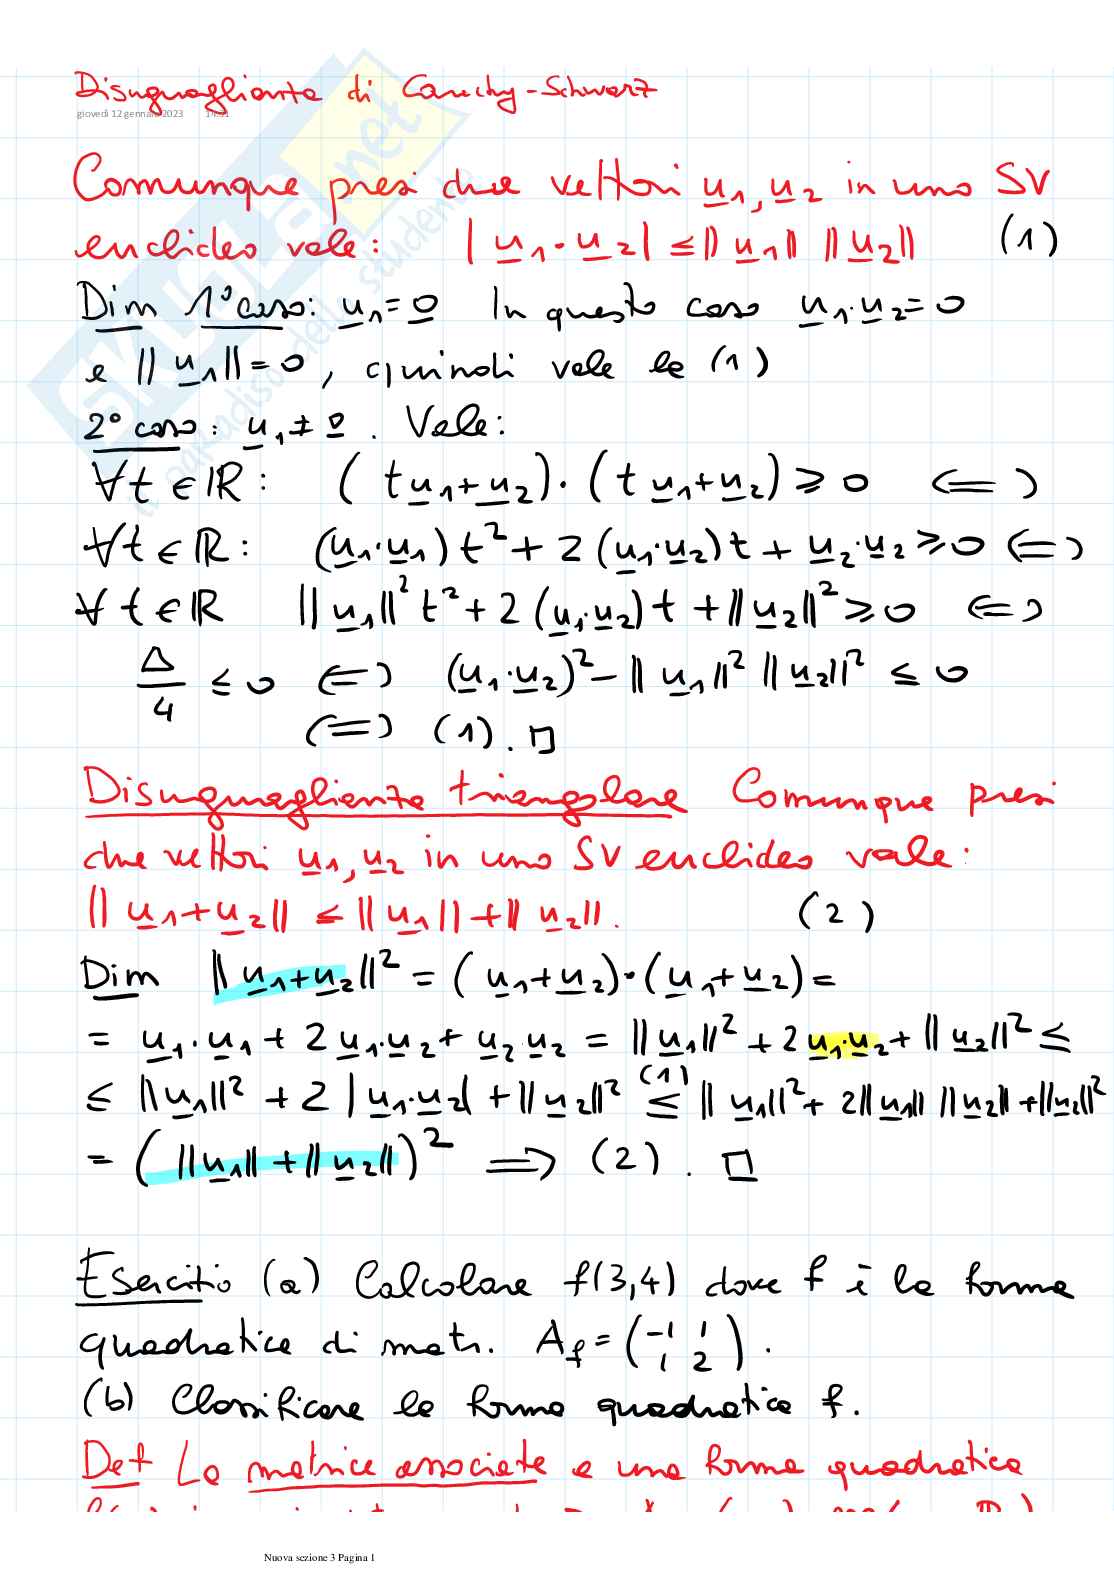 Disuguaglianza di Cauchy-Schwarz
giovedì 12 gennaio 2023
Comunque presi due vettori u₁, u₂ in uno SV
euclideo vale: |u₁·u₂| ≤ ‖u₁‖ ‖u₂‖ (1)
Dim 1° caso: u₁=0 In questo caso u₁·u₂=0
e ‖u₁‖=0, quindi vale la (1)
2° caso: u₁≠0. Vale:
∀t∈ℝ: (tu₁+u₂)·(tu₁+u₂)≥0 ⟺
∀t∈ℝ: (u₁·u₁)t²+2(u₁·u₂)t+u₂·u₂≥0 ⟺
∀t∈ℝ ‖u₁‖²t²+2(u₁·u₂)t+‖u₂‖²≥0 ⟺
Δ/4 ≤ 0 ⟺ (u₁·u₂)²-‖u₁‖²‖u₂‖² ≤ 0
⟺ (1). □
Disuguaglianza triangolare Comunque presi
due vettori u₁, u₂ in uno SV euclideo vale:
‖u₁+u₂‖ ≤ ‖u₁‖+‖u₂‖. (2)
Dim ‖u₁+u₂‖² = (u₁+u₂)·(u₁+u₂)=
= u₁·u₁+2u₁·u₂+u₂·u₂ = ‖u₁‖²+2u₁·u₂+‖u₂‖² ≤
≤ ‖u₁‖²+2|u₁·u₂|+‖u₂‖² ≤(1) ‖u₁‖²+2‖u₁‖ ‖u₂‖+‖u₂‖²
= (‖u₁‖+‖u₂‖)² ⟹ (2). □
Esercizio (a) Calcolare f(3,4) dove f è la forma
quadratica di matr. A_f = (-1 1
1 2).
(b) Classificare la forma quadratica f.
Def La matrice associata a una forma quadratica
Nuova sezione 3 Pagina 1